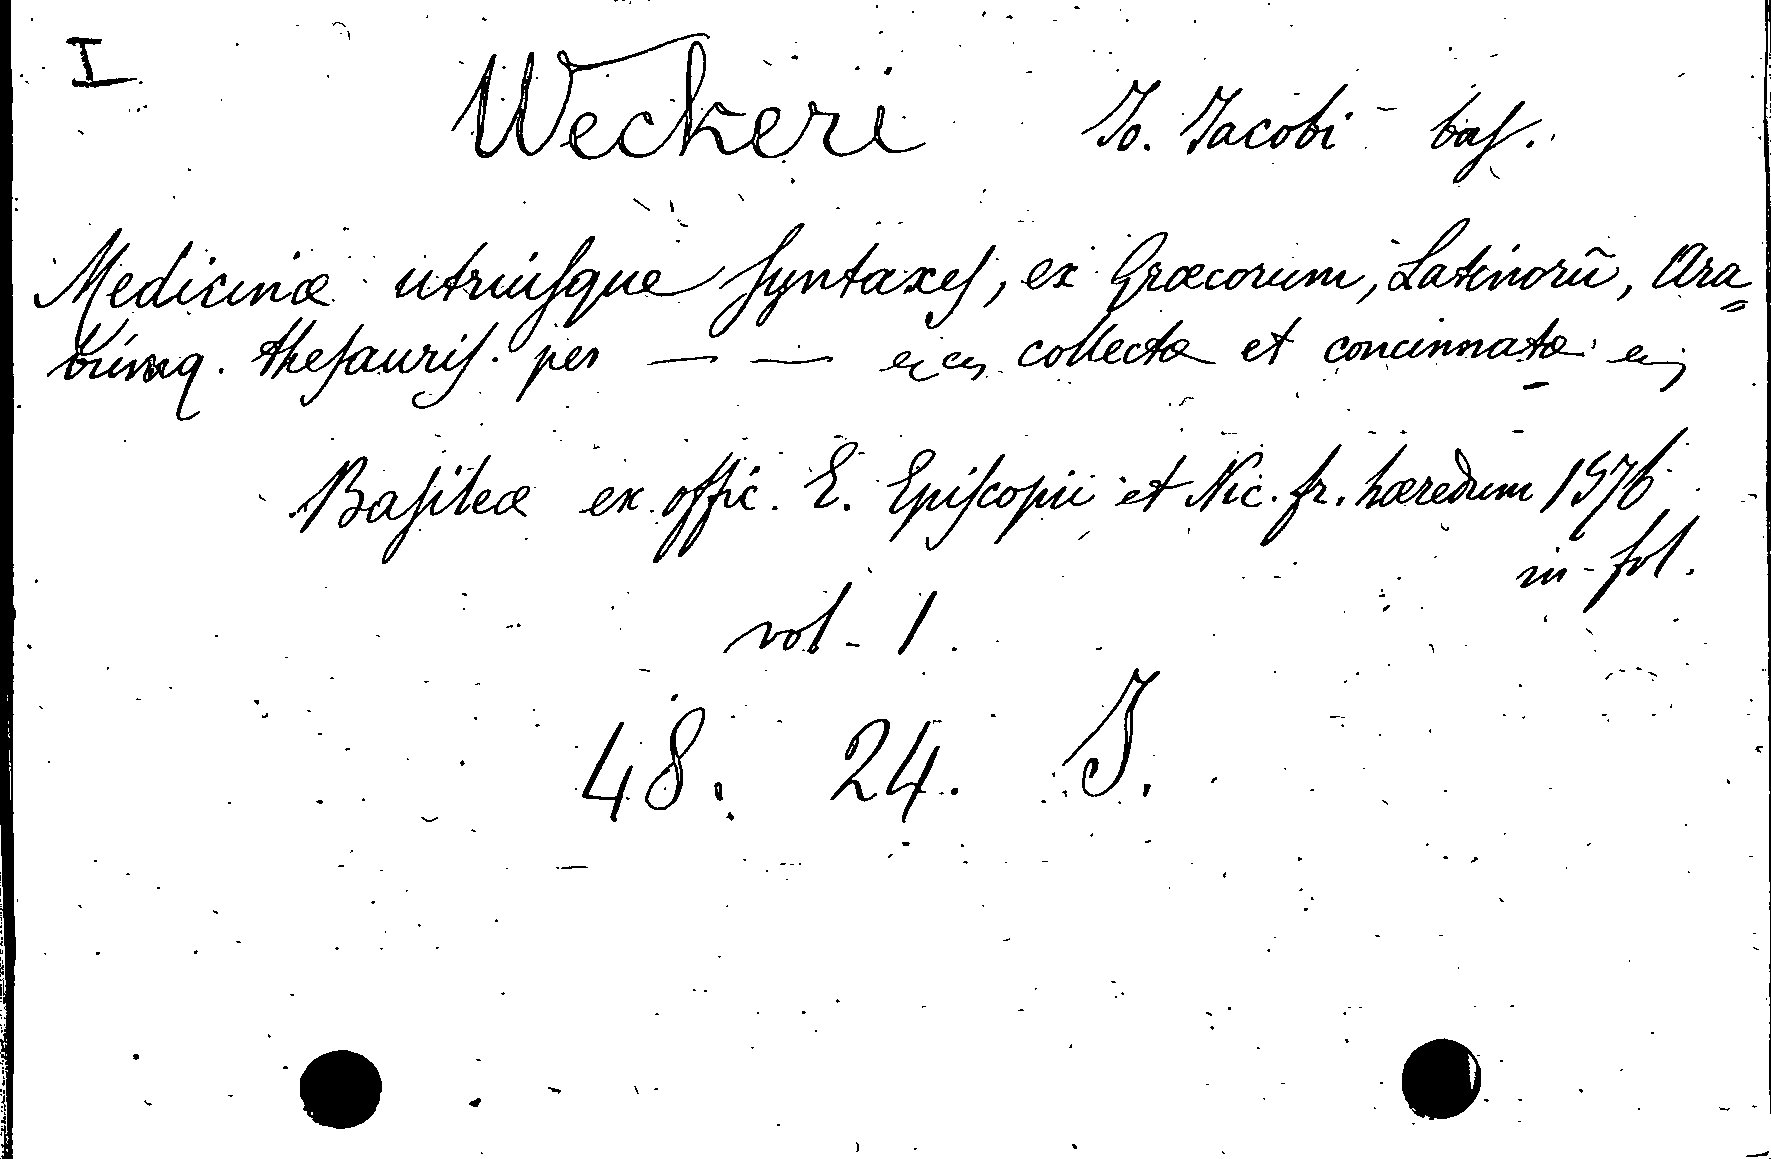 I
Weckeri Io. Jacobi bas.
Medicinæ utriusque syntaxes, ex Græcorum, Latinorū, Ara=
bumq. thesauris. per — — collectæ et concinnatæ
Basileæ ex offic. E. Episcopii et Nic. fr. hæredum 1576
in-fol.
vol - 1.
48. 24. J.